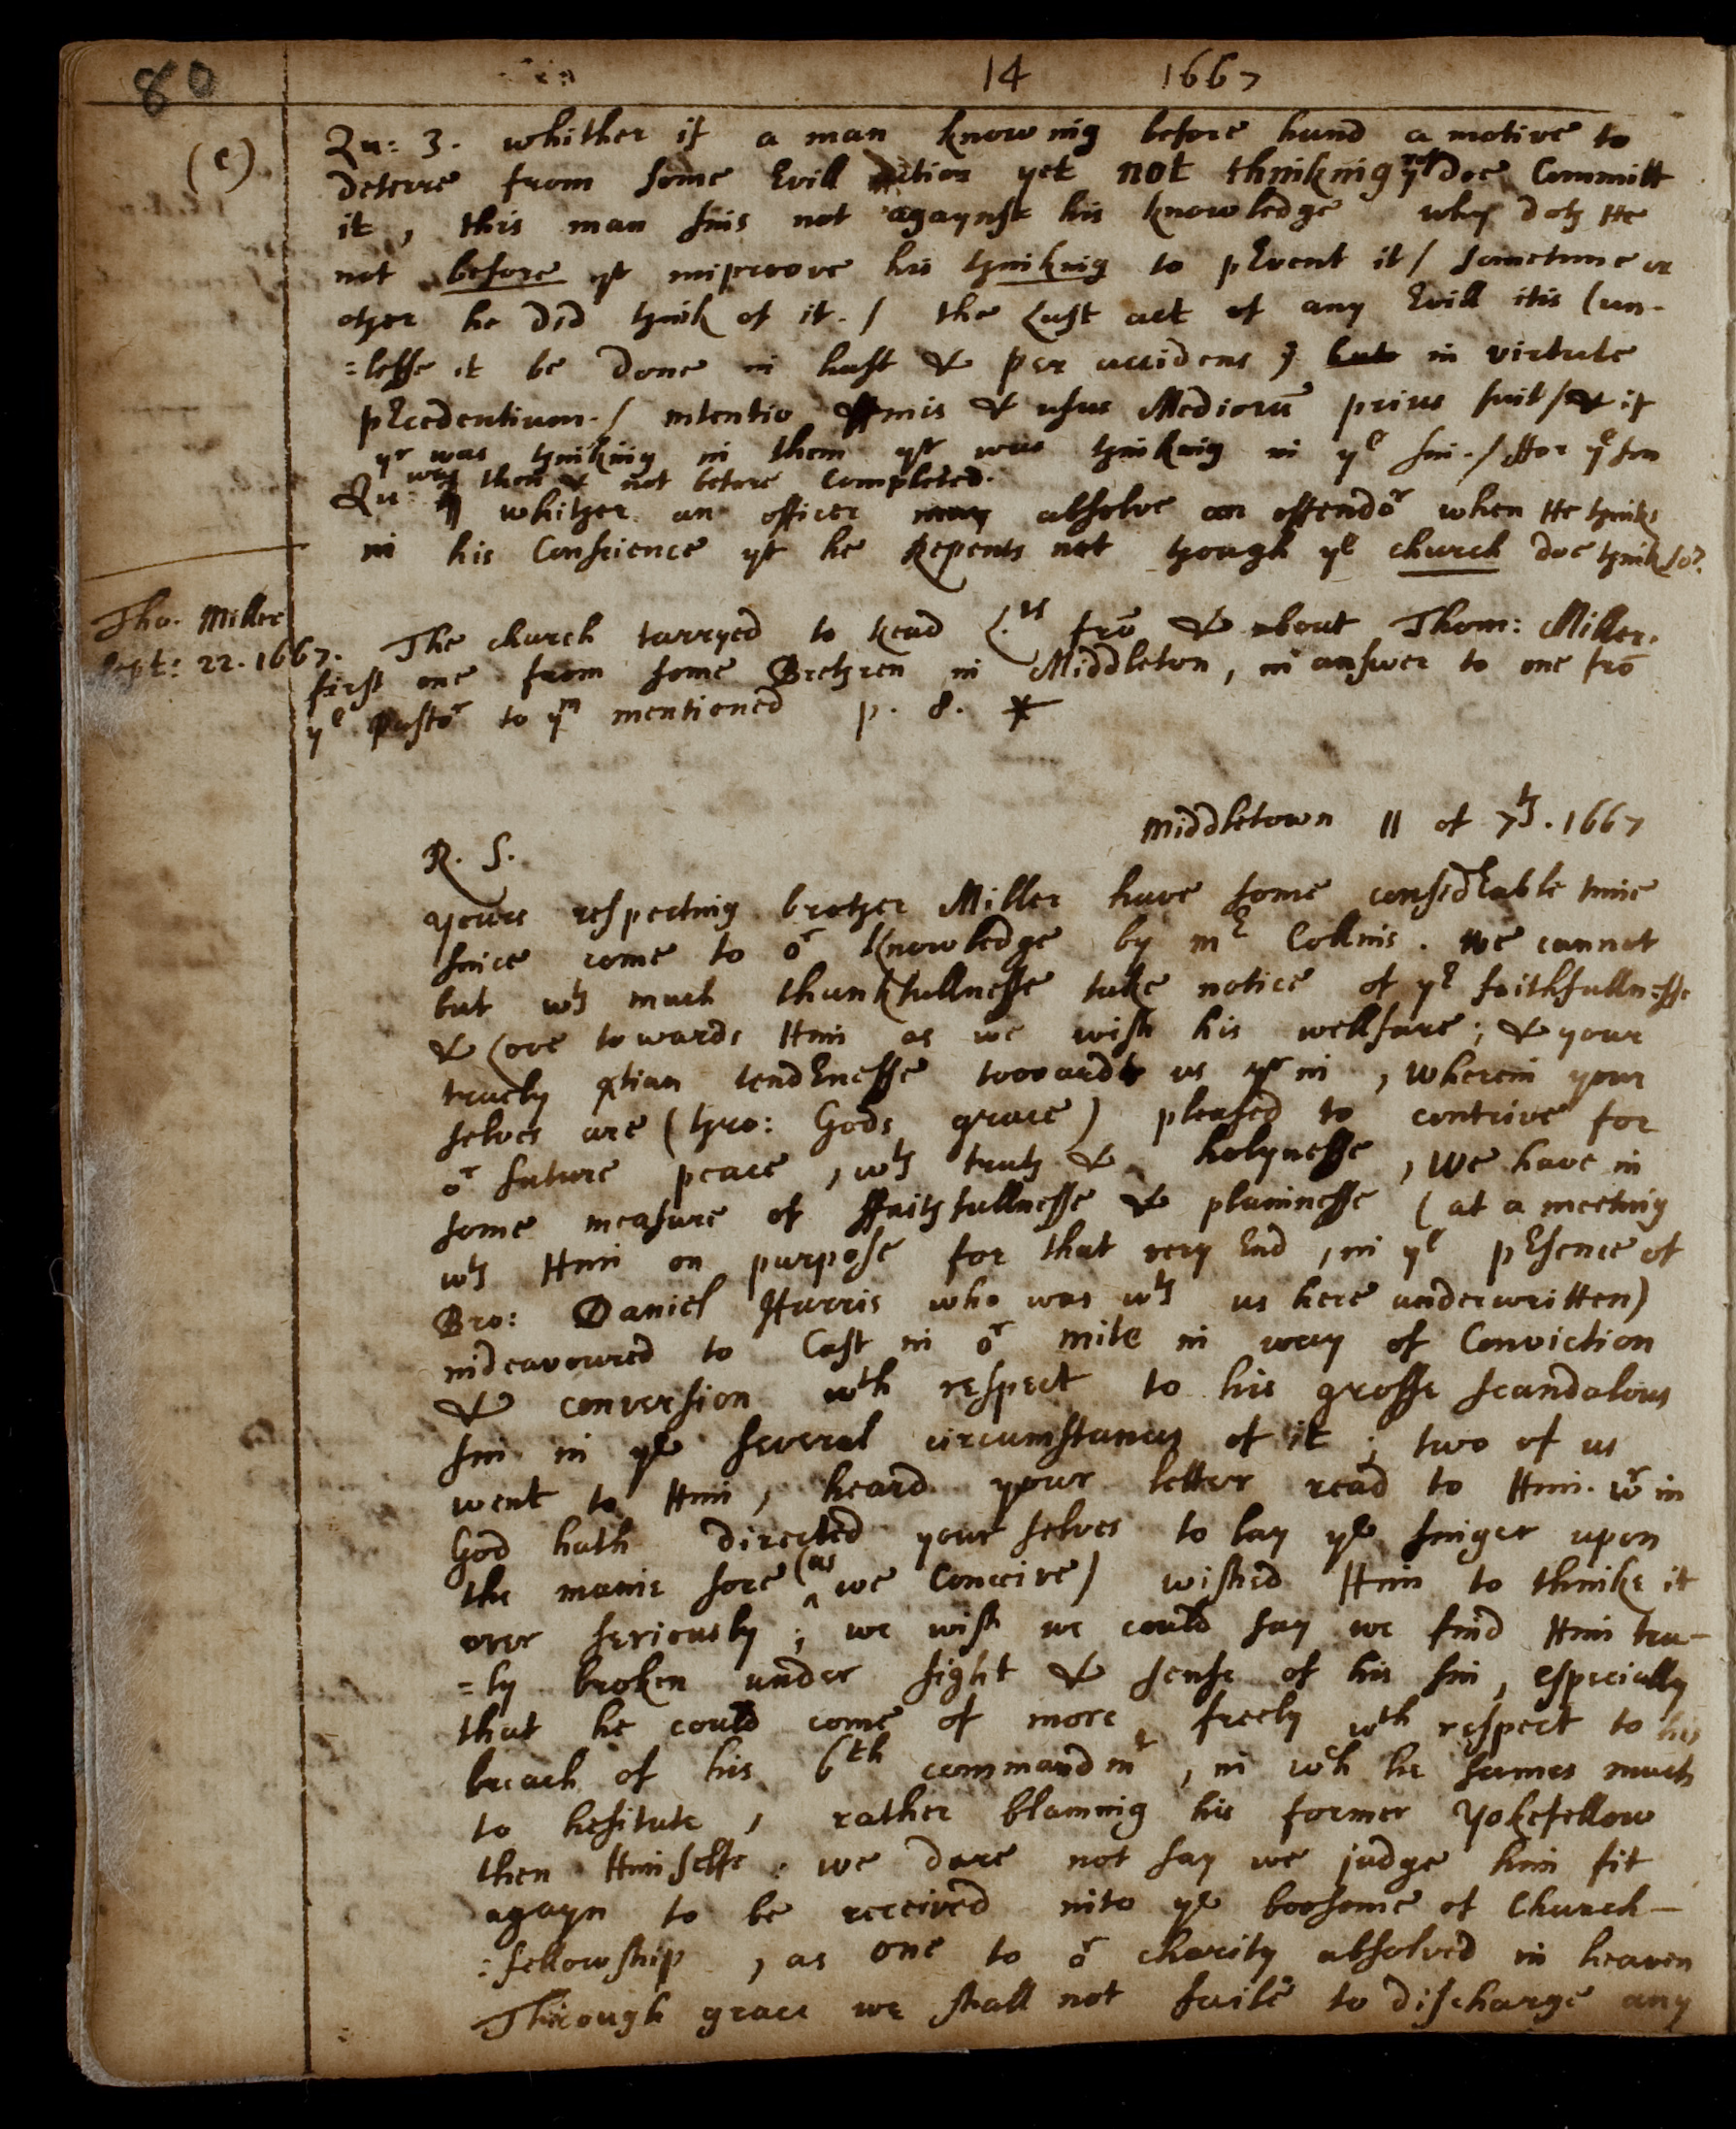 80
14 1667
(e)
Qu: 3. whither if a man knowing before hand a motive to
deterre from some Evill action yet not thinking yrof doe Committ
it, this man sins not agaynst his knowledge why doth He
not before yt improove his thinking to pEvent it / sometime or
other he did think of it. / the Last act of any Evill itis (un-
=lesse it be done in hast & per accidens) in virtute
pEcedentium. / intentio ffinis & usus Mediorū prius fuit / & if
yr was thinking in them yr was thinking in ye sin. / ffor ye sin
was then & not before Completed.
Qu: 4 whither an officer may absolve an offendor when He thinks
in his Conscience yt he Repents not though ye church doe think so?
Tho. Miller
Sept: 22. 1667.
The church tarryed to read L.rs frō & about Thom: Miller.
first one from some Brethren in Middleton, in answer to one frō
ye Pastor to ym mentioned p. 8. *
Middletown 11 of 7th. 1667
R. S.
yours respecting brother Miller have some considEable time
since come to or knowledge by mr Collins. We cannot
but wth much thankfullnesse take notice of yr faithfullnesse
& Love towards Him as we wish his wellfare; & your
truely xtian tendEnesse towards us yrin, wherein your
selves are (thro: Gods grace) pleased to contrive for
or future peace, wth truth & holynesse, We have in
some measure of ffaithfullnesse & plainnesse (at a meeting
wth Him on purpose for that very End, in ye pEsence of
Bro: Daniel Harris who was wth us here underwritten)
indeavoured to Cast in or mite in way of Conviction
& conversion wth respect to his grosse scandalous
sin in ye several circumstances of it; two of us
went to Him, heard your letter read to Him. wrin
God hath directed your selves to lay ye finger upon
the maine sore (as we Conceive) wished Him to thinke it
over seriously; we wish we could say we find Him tru-
=ly broken under sight & sense of his sin, especially
that he could come of more freely wth respect to his
breach of his 6th commandmt, in wch he seemes much
to hesitate, rather blaming his former Yokefellow
then Himselfe. we dare not say we judge him fit
agayn to be received into ye boosome of Church-
:fellowship, as one to or charity absolved in heaven
Through grace we shall not faile to discharge any